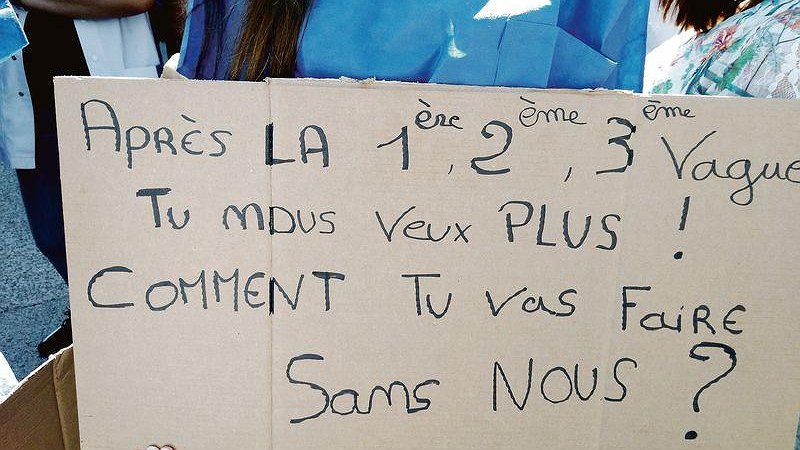 APRÈS LA 1ère, 2ème, 3ème Vague
Tu nous veux PLUS !
COMMENT Tu vas FaiRE
Sans NOUS ?